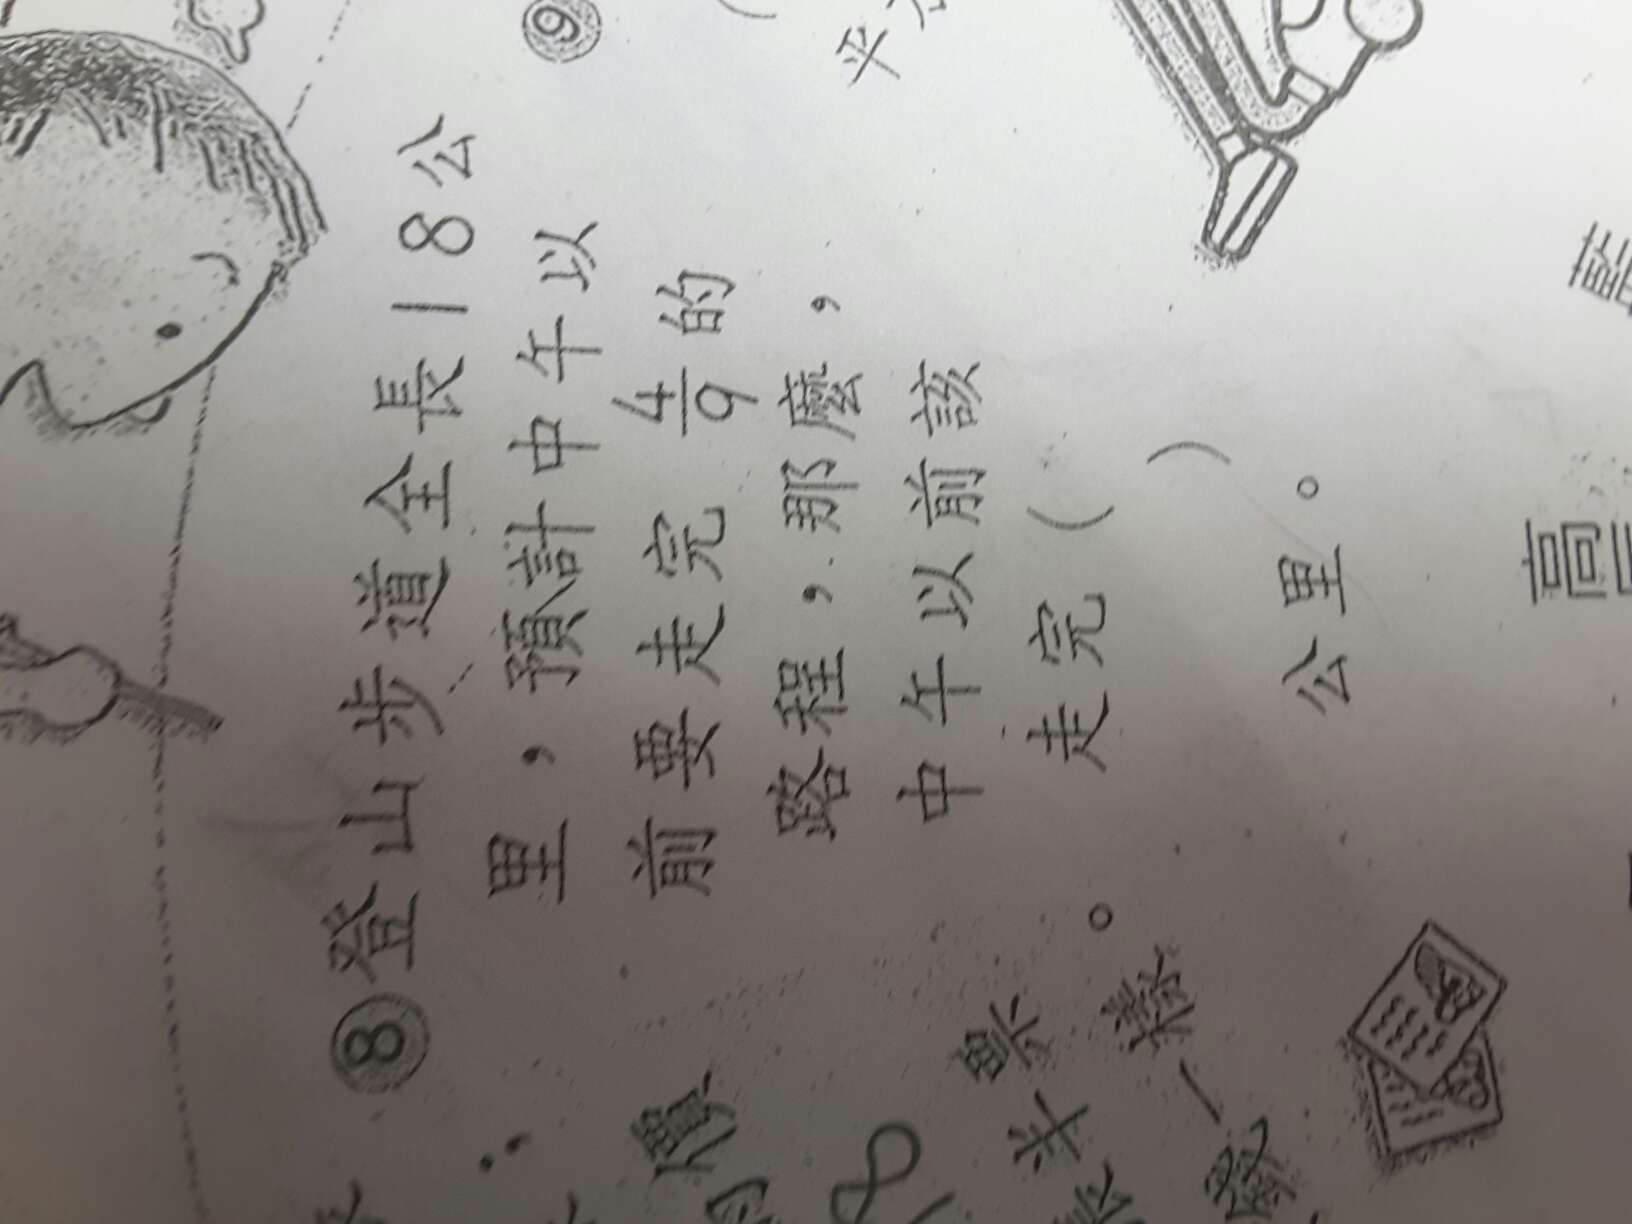 ⑧登山步道全長18公
里,預計中午以
前要走完4/9的
路程,那麼,
中午以前該
走完( )
公里。
⑨
平
價
8
半票
一樣。
高